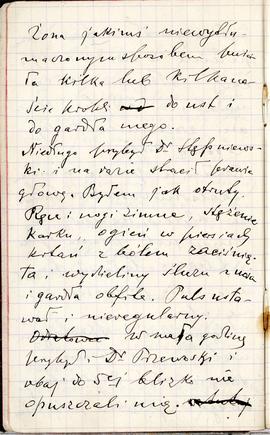 Żona jakimś niewytłu-
maczonym sposobem
ła kilka lub kilkana-
ście kropli do ust i
do gardła mego.
Niedługo przybył Dr
ski i na razie stracił prawie
głowę. Byłem jak otruty.
Ręce i nogi zimne, stężenie
karku, ogień w piersiach,
z bólem zaciśnię-
ta i wydzieliny śluzu z nosa
i gardła obfite. Puls usta-
wał i nieregularny.
w małą godzinę
przybył i Dr i
obaj do 5ej blizko nie
opuszczali mię.